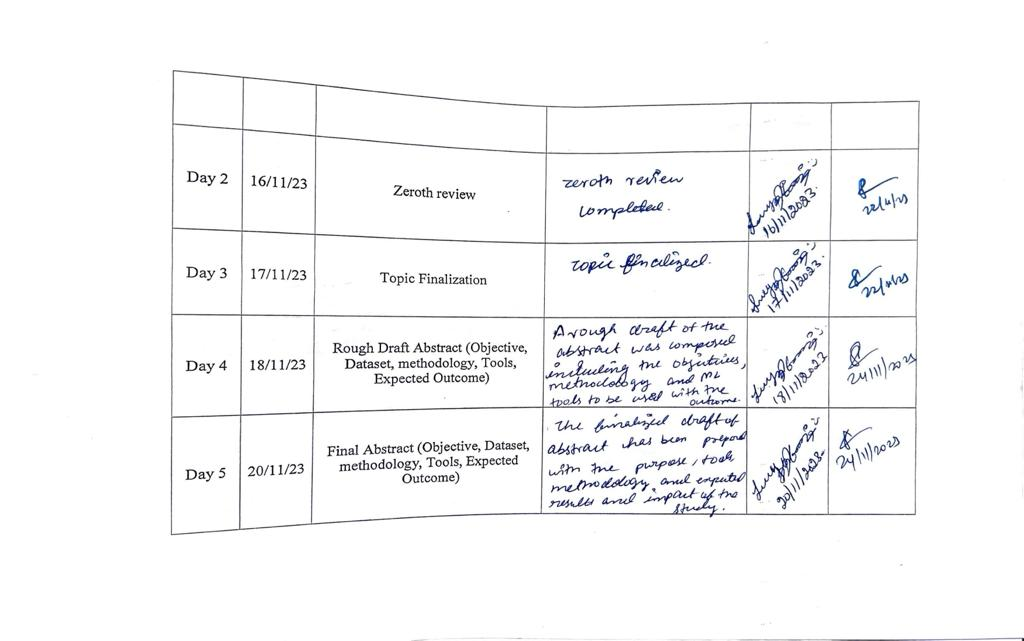 Day 2
16/11/23
Zeroth review
zeroth review
completed.
16/11/2023.
22/11/23
Day 3
17/11/23
Topic Finalization
Topic finalized.
17/11/2023.
22/11/23
Day 4
18/11/23
Rough Draft Abstract (Objective,
Dataset, methodology, Tools,
Expected Outcome)
A rough draft of the
abstract was composed
including the objectives,
methodology and ML
tools to be used with the
outcome.
18/11/2023
24/11/2023
Day 5
20/11/23
Final Abstract (Objective, Dataset,
methodology, Tools, Expected
Outcome)
The finalized draft of
abstract has been prepared
with the purpose, tools
methodology and expected
results and impact of the
study.
20/11/2023
24/11/2023